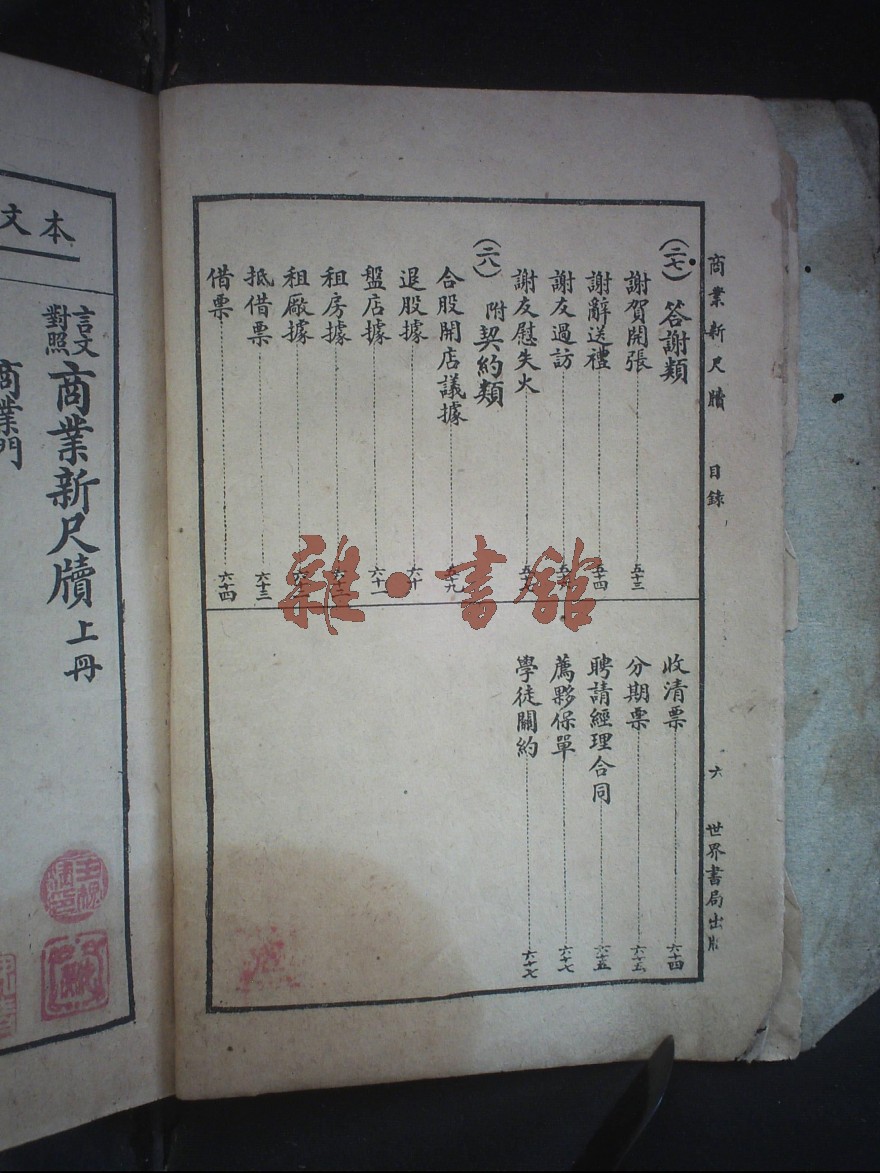 商業新尺牘 目錄 六 世界書局出版
(二七) 答謝類
謝賀開張 五十三
謝辭送禮 五十四
謝友過訪
謝友慰失火
(二八) 附契約類
合股開店議據 五十九
退股據 六十
盤店據 六十一
租房據
租廠據
抵借票 六十三
借票 六十四
收清票 六十四
分期票 六十五
聘請經理合同 六十五
薦夥保單 六十七
學徒關約 六十七
雜·書館
本文
言文對照 商業新尺牘 上冊
商業門